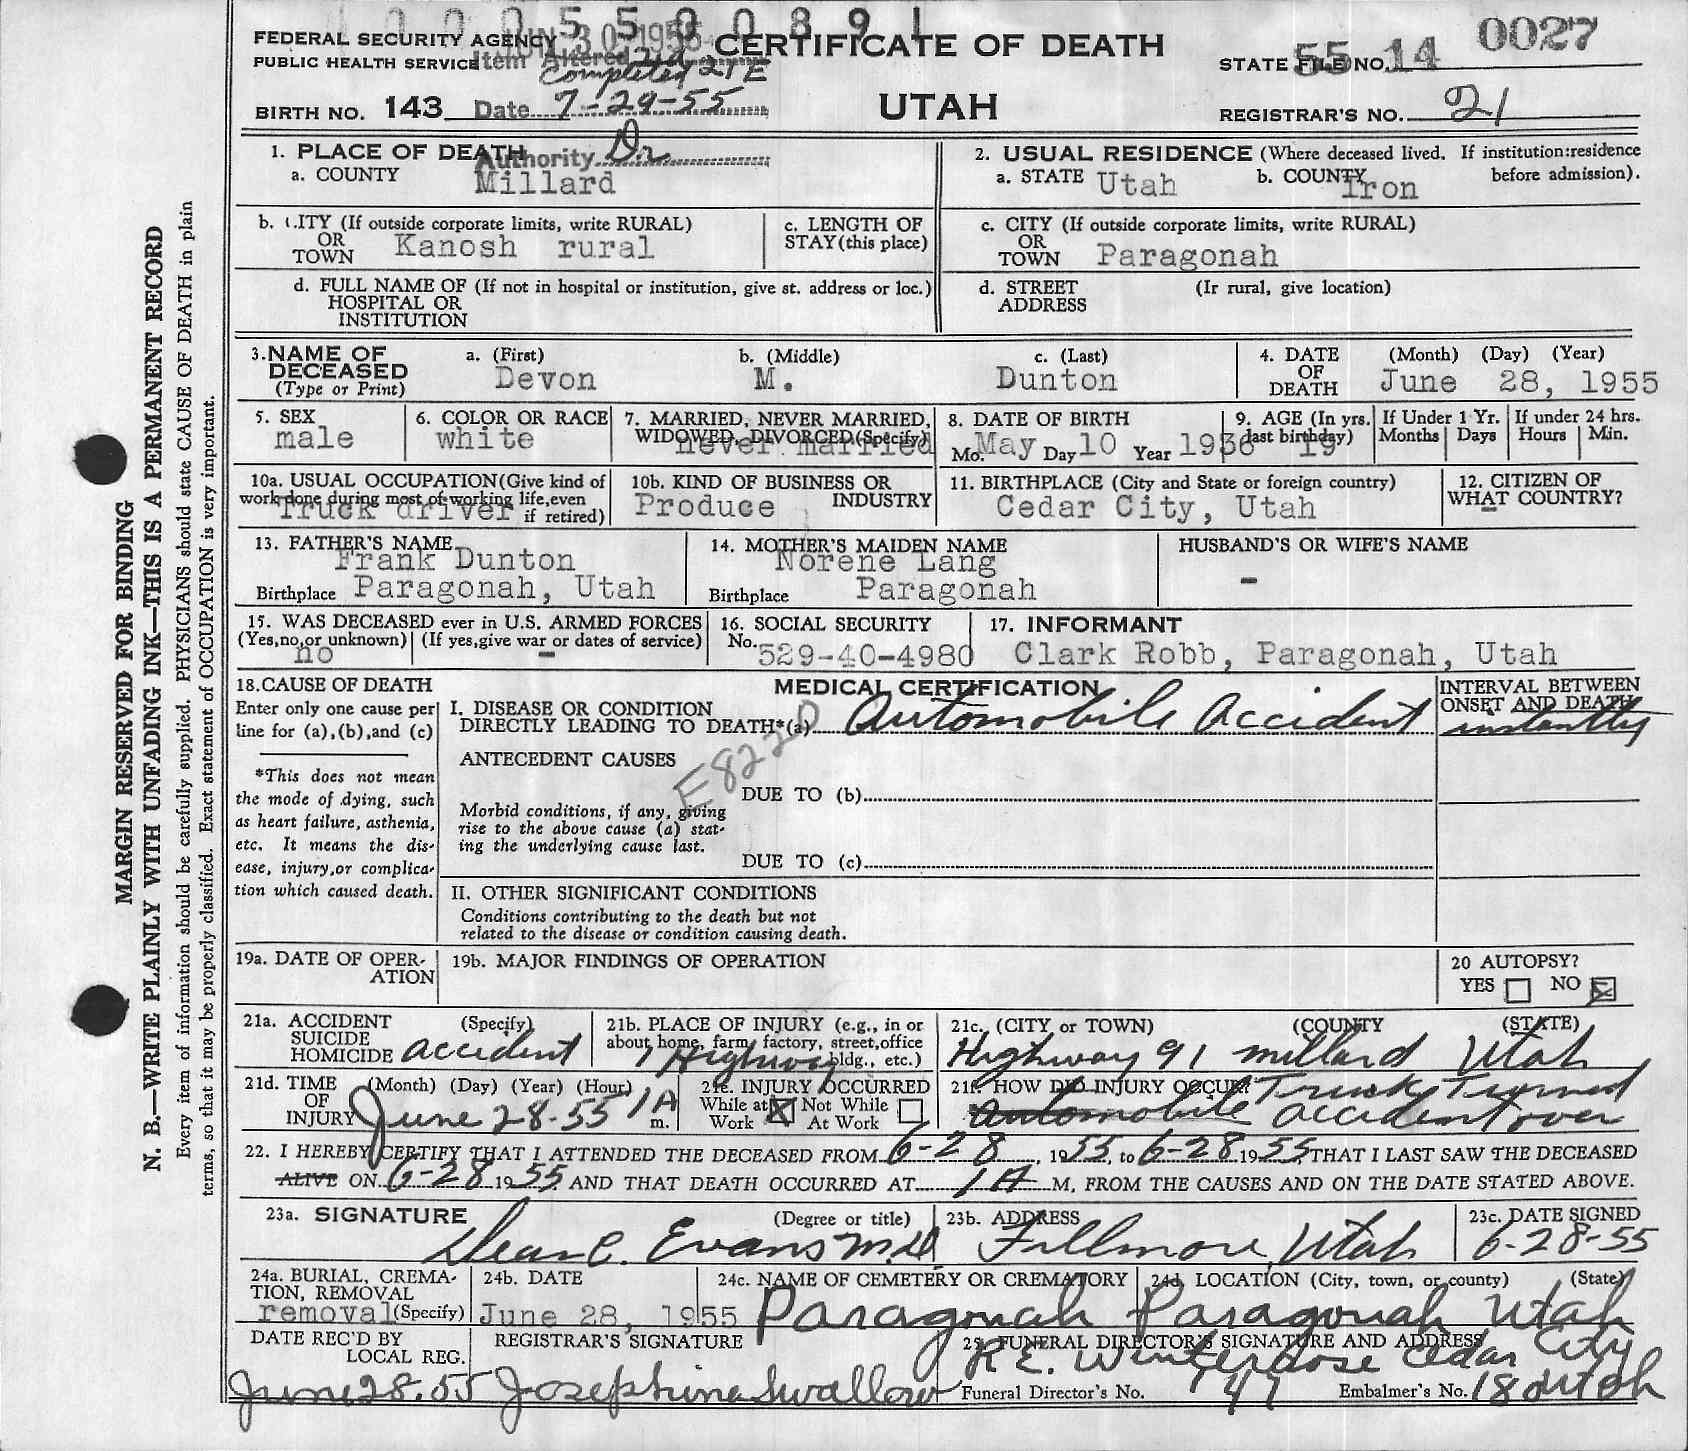 1 0 0 0 5 5 0 0 8 9 1
FEDERAL SECURITY AGENCY JUN 30 1955 CERTIFICATE OF DEATH
PUBLIC HEALTH SERVICE Item Altered 21d
Completed 21E
STATE FILE NO. 55 14 0027
BIRTH NO. 143 Date 7-29-55 UTAH REGISTRAR'S NO. 21
Authority Dr
1. PLACE OF DEATH
a. COUNTY Millard
2. USUAL RESIDENCE (Where deceased lived. If institution:residence before admission).
a. STATE Utah b. COUNTY Iron
b. CITY (If outside corporate limits, write RURAL)
OR TOWN Kanosh rural
c. LENGTH OF STAY (this place)
c. CITY (If outside corporate limits, write RURAL)
OR TOWN Paragonah
d. FULL NAME OF (If not in hospital or institution, give st. address or loc.)
HOSPITAL OR
INSTITUTION
d. STREET ADDRESS (Ir rural, give location)
3. NAME OF DECEASED (Type or Print)
a. (First) b. (Middle) c. (Last)
Devon M. Dunton
4. DATE OF DEATH (Month) (Day) (Year)
June 28, 1955
5. SEX
male
6. COLOR OR RACE
white
7. MARRIED, NEVER MARRIED, WIDOWED, DIVORCED (Specify)
never married
8. DATE OF BIRTH
Mo. May Day 10 Year 1936
9. AGE (In yrs. last birthday) 19
If Under 1 Yr. Months Days
If under 24 hrs. Hours Min.
10a. USUAL OCCUPATION (Give kind of work done during most of working life, even if retired)
Truck driver
10b. KIND OF BUSINESS OR INDUSTRY
Produce
11. BIRTHPLACE (City and State or foreign country)
Cedar City, Utah
12. CITIZEN OF WHAT COUNTRY?
-
13. FATHER'S NAME
Frank Dunton
Birthplace Paragonah, Utah
14. MOTHER'S MAIDEN NAME
Norene Lang
Birthplace Paragonah
HUSBAND'S OR WIFE'S NAME
-
15. WAS DECEASED ever in U.S. ARMED FORCES
(Yes, no, or unknown) (If yes, give war or dates of service)
no -
16. SOCIAL SECURITY
No. 529-40-4980
17. INFORMANT
Clark Robb, Paragonah, Utah
18. CAUSE OF DEATH
Enter only one cause per line for (a), (b), and (c)
*This does not mean the mode of dying, such as heart failure, asthenia, etc. It means the disease, injury, or complication which caused death.
MEDICAL CERTIFICATION
I. DISEASE OR CONDITION
DIRECTLY LEADING TO DEATH*(a) Automobile Accident
INTERVAL BETWEEN ONSET AND DEATH
instantly
E822 D
ANTECEDENT CAUSES
DUE TO (b)
Morbid conditions, if any, giving rise to the above cause (a) stating the underlying cause last.
DUE TO (c)
II. OTHER SIGNIFICANT CONDITIONS
Conditions contributing to the death but not
related to the disease or condition causing death.
19a. DATE OF OPERATION
19b. MAJOR FINDINGS OF OPERATION
20 AUTOPSY?
YES NO
21a. ACCIDENT (Specify)
SUICIDE
HOMICIDE accident
21b. PLACE OF INJURY (e.g., in or about home, farm, factory, street, office bldg., etc.)
Highway
21c. (CITY or TOWN) (COUNTY (STATE)
Highway 91 Millard Utah
21d. TIME OF INJURY (Month) (Day) (Year) (Hour)
June 28-55 1A m.
21e. INJURY OCCURRED
While at Work Not While At Work
21f. HOW DID INJURY OCCUR? Truck Turned
Automobile accident over
22. I HEREBY CERTIFY THAT I ATTENDED THE DECEASED FROM 6-28, 1955, to 6-28 1955, THAT I LAST SAW THE DECEASED
ALIVE ON 6-28 1955 AND THAT DEATH OCCURRED AT 1A M, FROM THE CAUSES AND ON THE DATE STATED ABOVE.
23a. SIGNATURE (Degree or title)
Dean C. Evans M.D.
23b. ADDRESS
Fillmore, Utah
23c. DATE SIGNED
6-28-55
24a. BURIAL, CREMATION, REMOVAL (Specify)
removal
24b. DATE
June 28, 1955
24c. NAME OF CEMETERY OR CREMATORY
Paragonah
24d. LOCATION (City, town, or county) (State)
Paragonah Utah
DATE REC'D BY LOCAL REG.
June 28.55
REGISTRAR'S SIGNATURE
Josephine Swallow
25. FUNERAL DIRECTOR'S SIGNATURE AND ADDRESS
R.E. Winterrose Cedar City
Utah
Funeral Director's No. 147 Embalmer's No. 180
MARGIN RESERVED FOR BINDING
N. B.—WRITE PLAINLY WITH UNFADING INK—THIS IS A PERMANENT RECORD
Every item of information should be carefully supplied. PHYSICIANS should state CAUSE OF DEATH in plain
terms, so that it may be properly classified. Exact statement of OCCUPATION is very important.